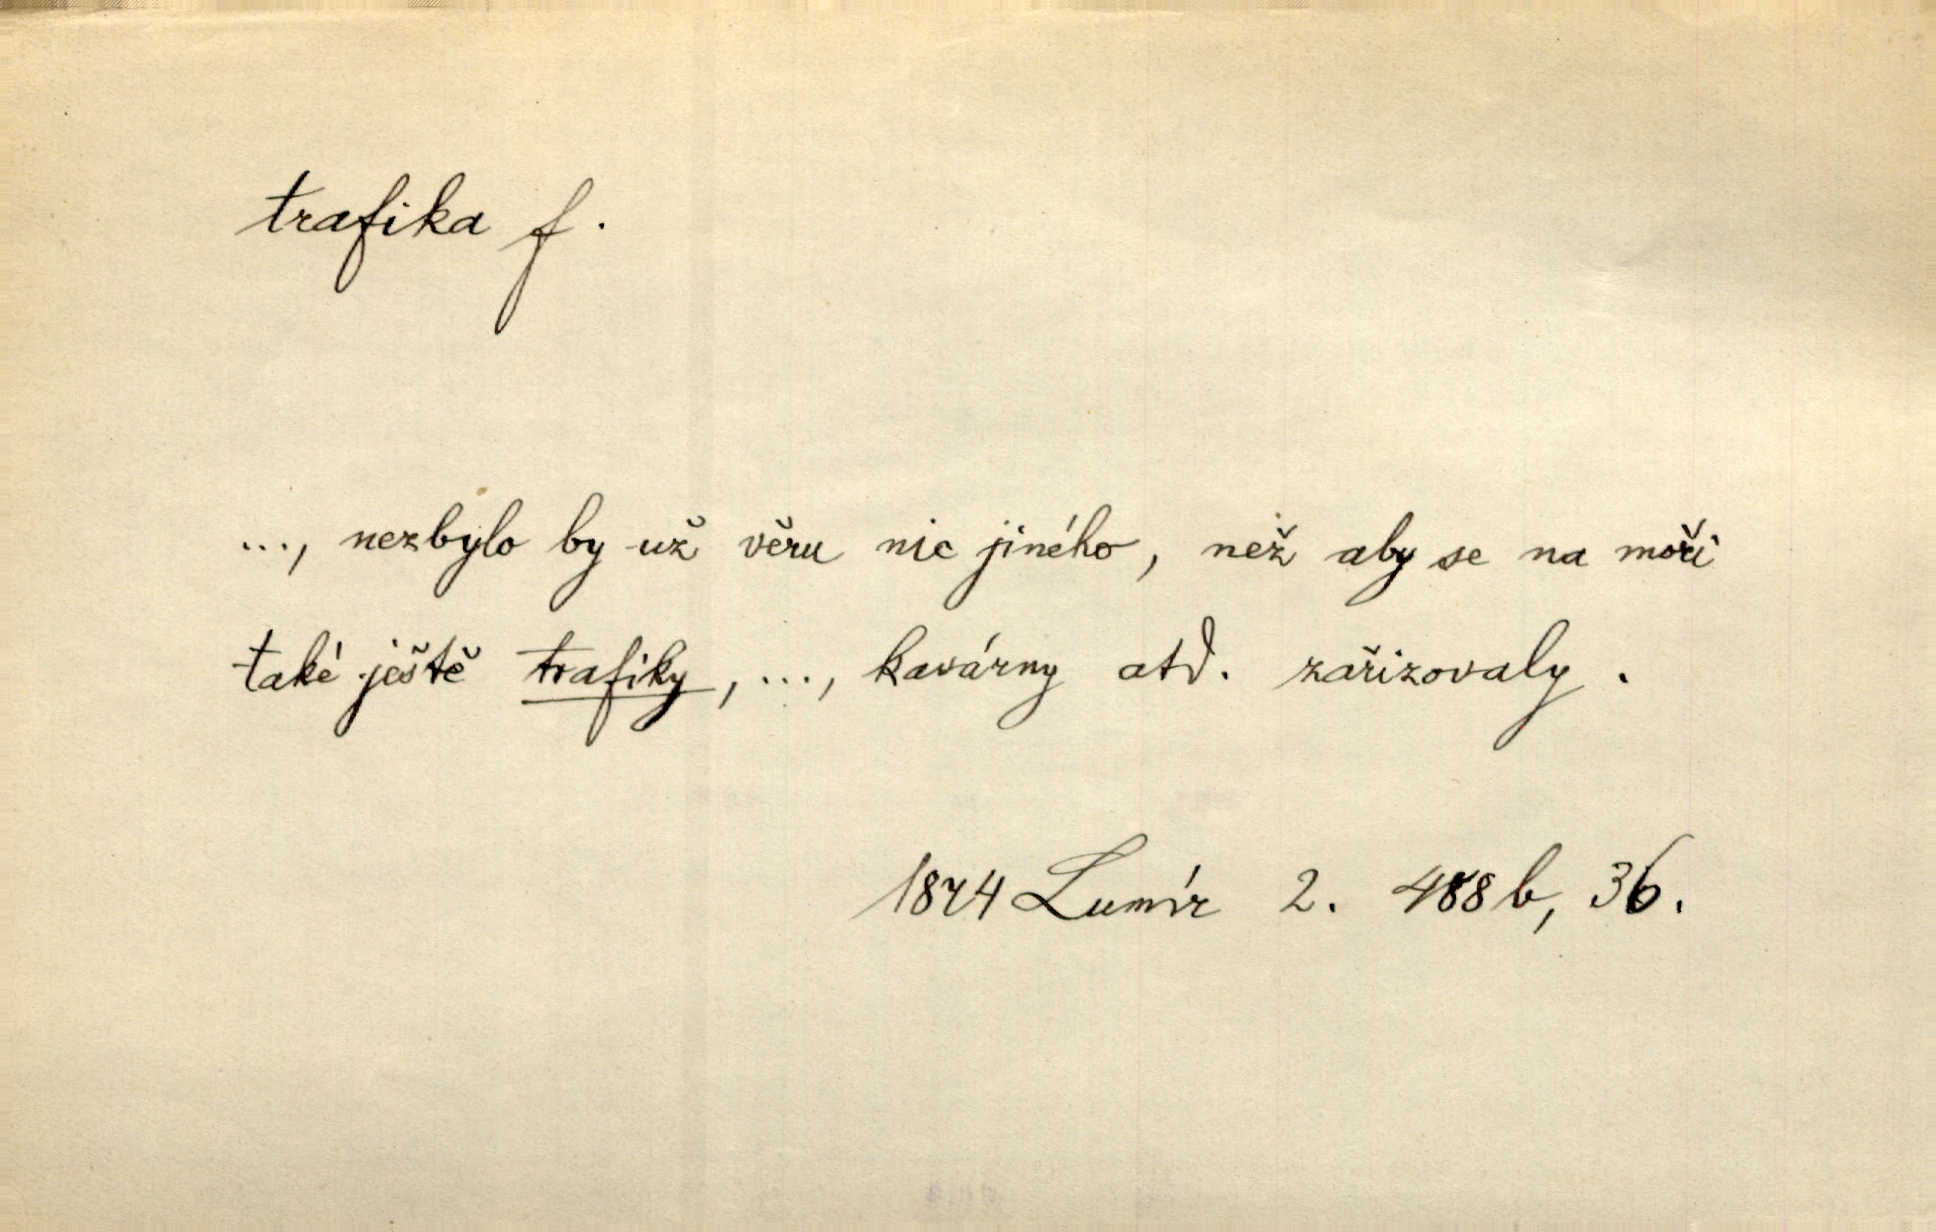 trafika f.
..., nezbylo by už věru nic jiného, než aby se na moři
také ještě trafiky, ..., kavárny atd. zařizovaly.
1874 Lumír 2. 488 b, 36.